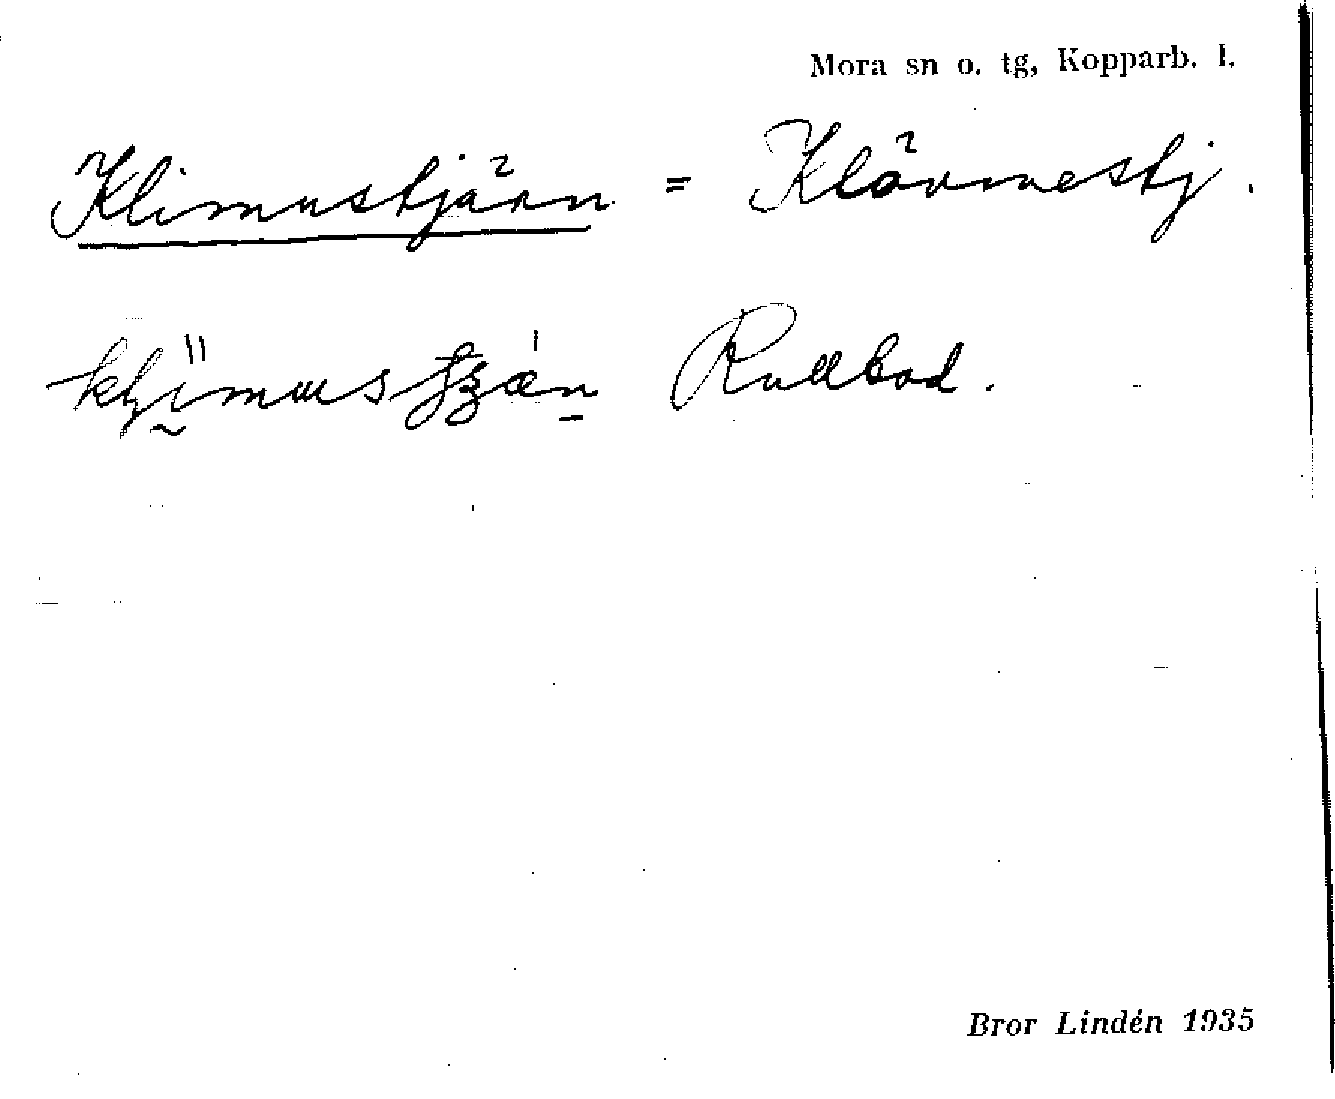 Mora sn o. tg, Kopparb. l.
Klimustjärn = Klövmestj.
Rullbod.
Bror Lindén 1935